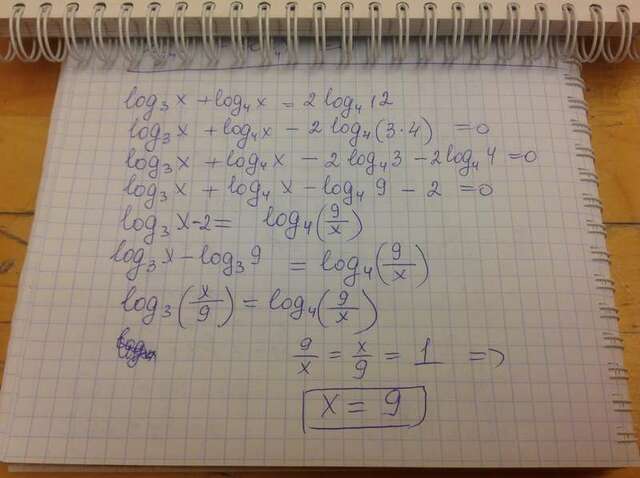 log₃x + log₄x = 2log₄12
log₃x + log₄x - 2log₄(3·4) = 0
log₃x + log₄x - 2log₄3 - 2log₄4 = 0
log₃x + log₄x - log₄9 - 2 = 0
log₃x - 2 = log₄(9/x)
log₃x - log₃9 = log₄(9/x)
log₃(x/9) = log₄(9/x)
9/x = x/9 = 1 =>
x = 9